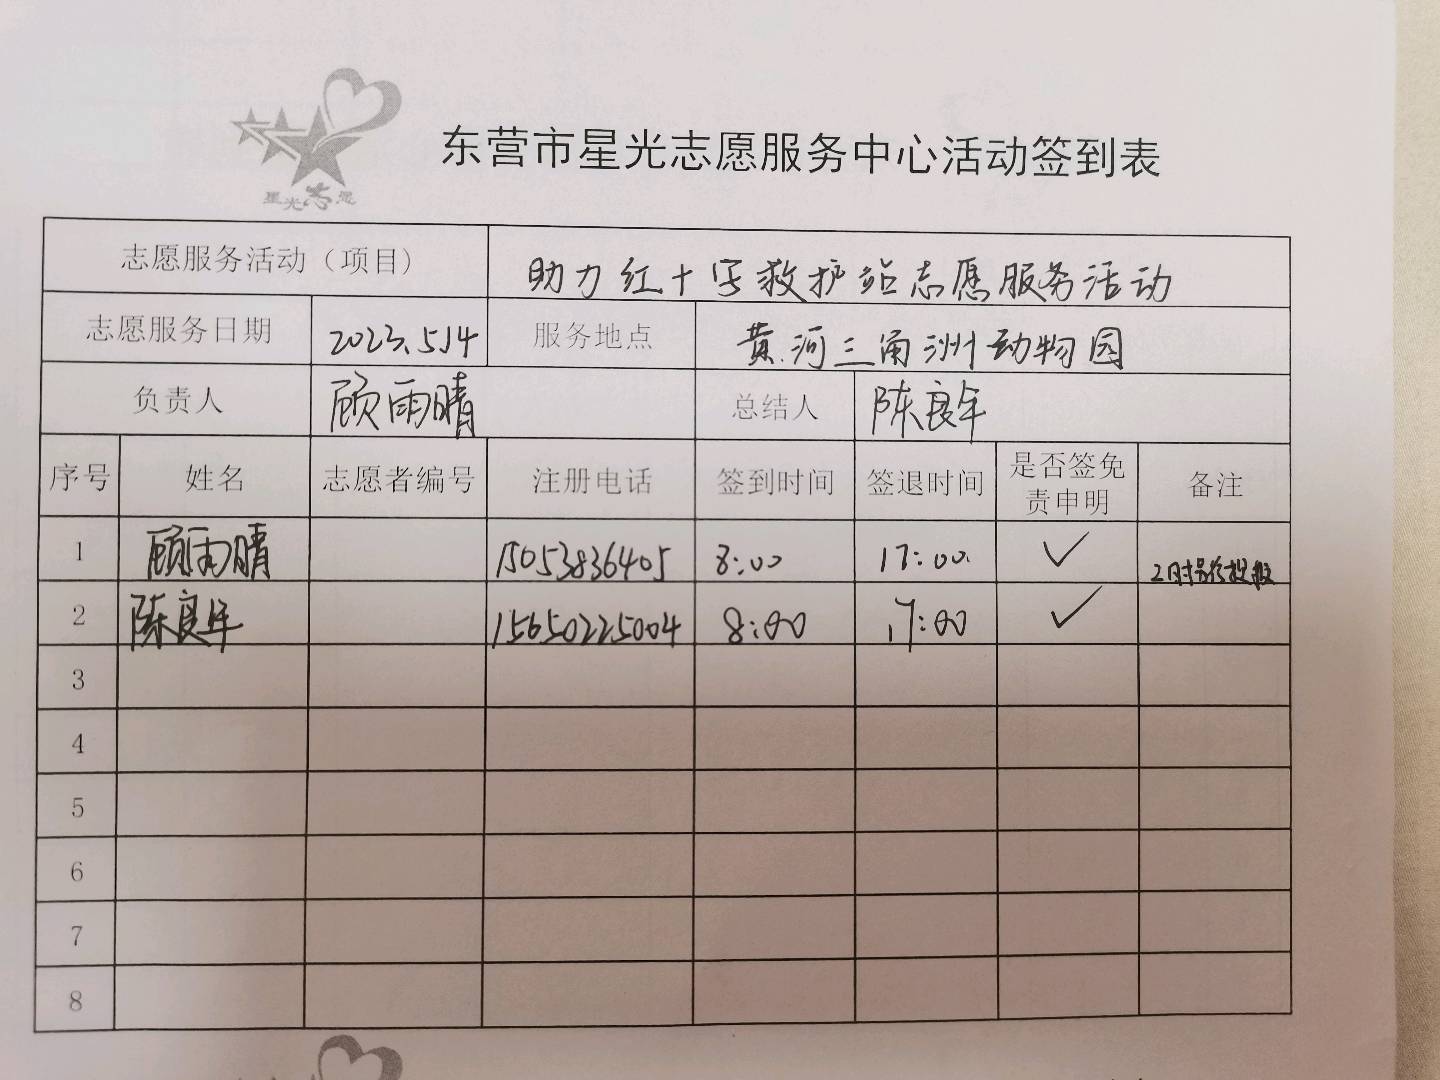 星光志愿
东营市星光志愿服务中心活动签到表
志愿服务活动（项目） 助力红十字救护站志愿服务活动
志愿服务日期 2023.5.14 服务地点 黄河三角洲动物园
负责人 顾雨晴 总结人 陈良年
序号 姓名 志愿者编号 注册电话 签到时间 签退时间 是否签免责申明 备注
1 顾雨晴 15053836405 8:00 17:00 ✓
2 陈良年 15650225004 8:00 17:00 ✓
3
4
5
6
7
8